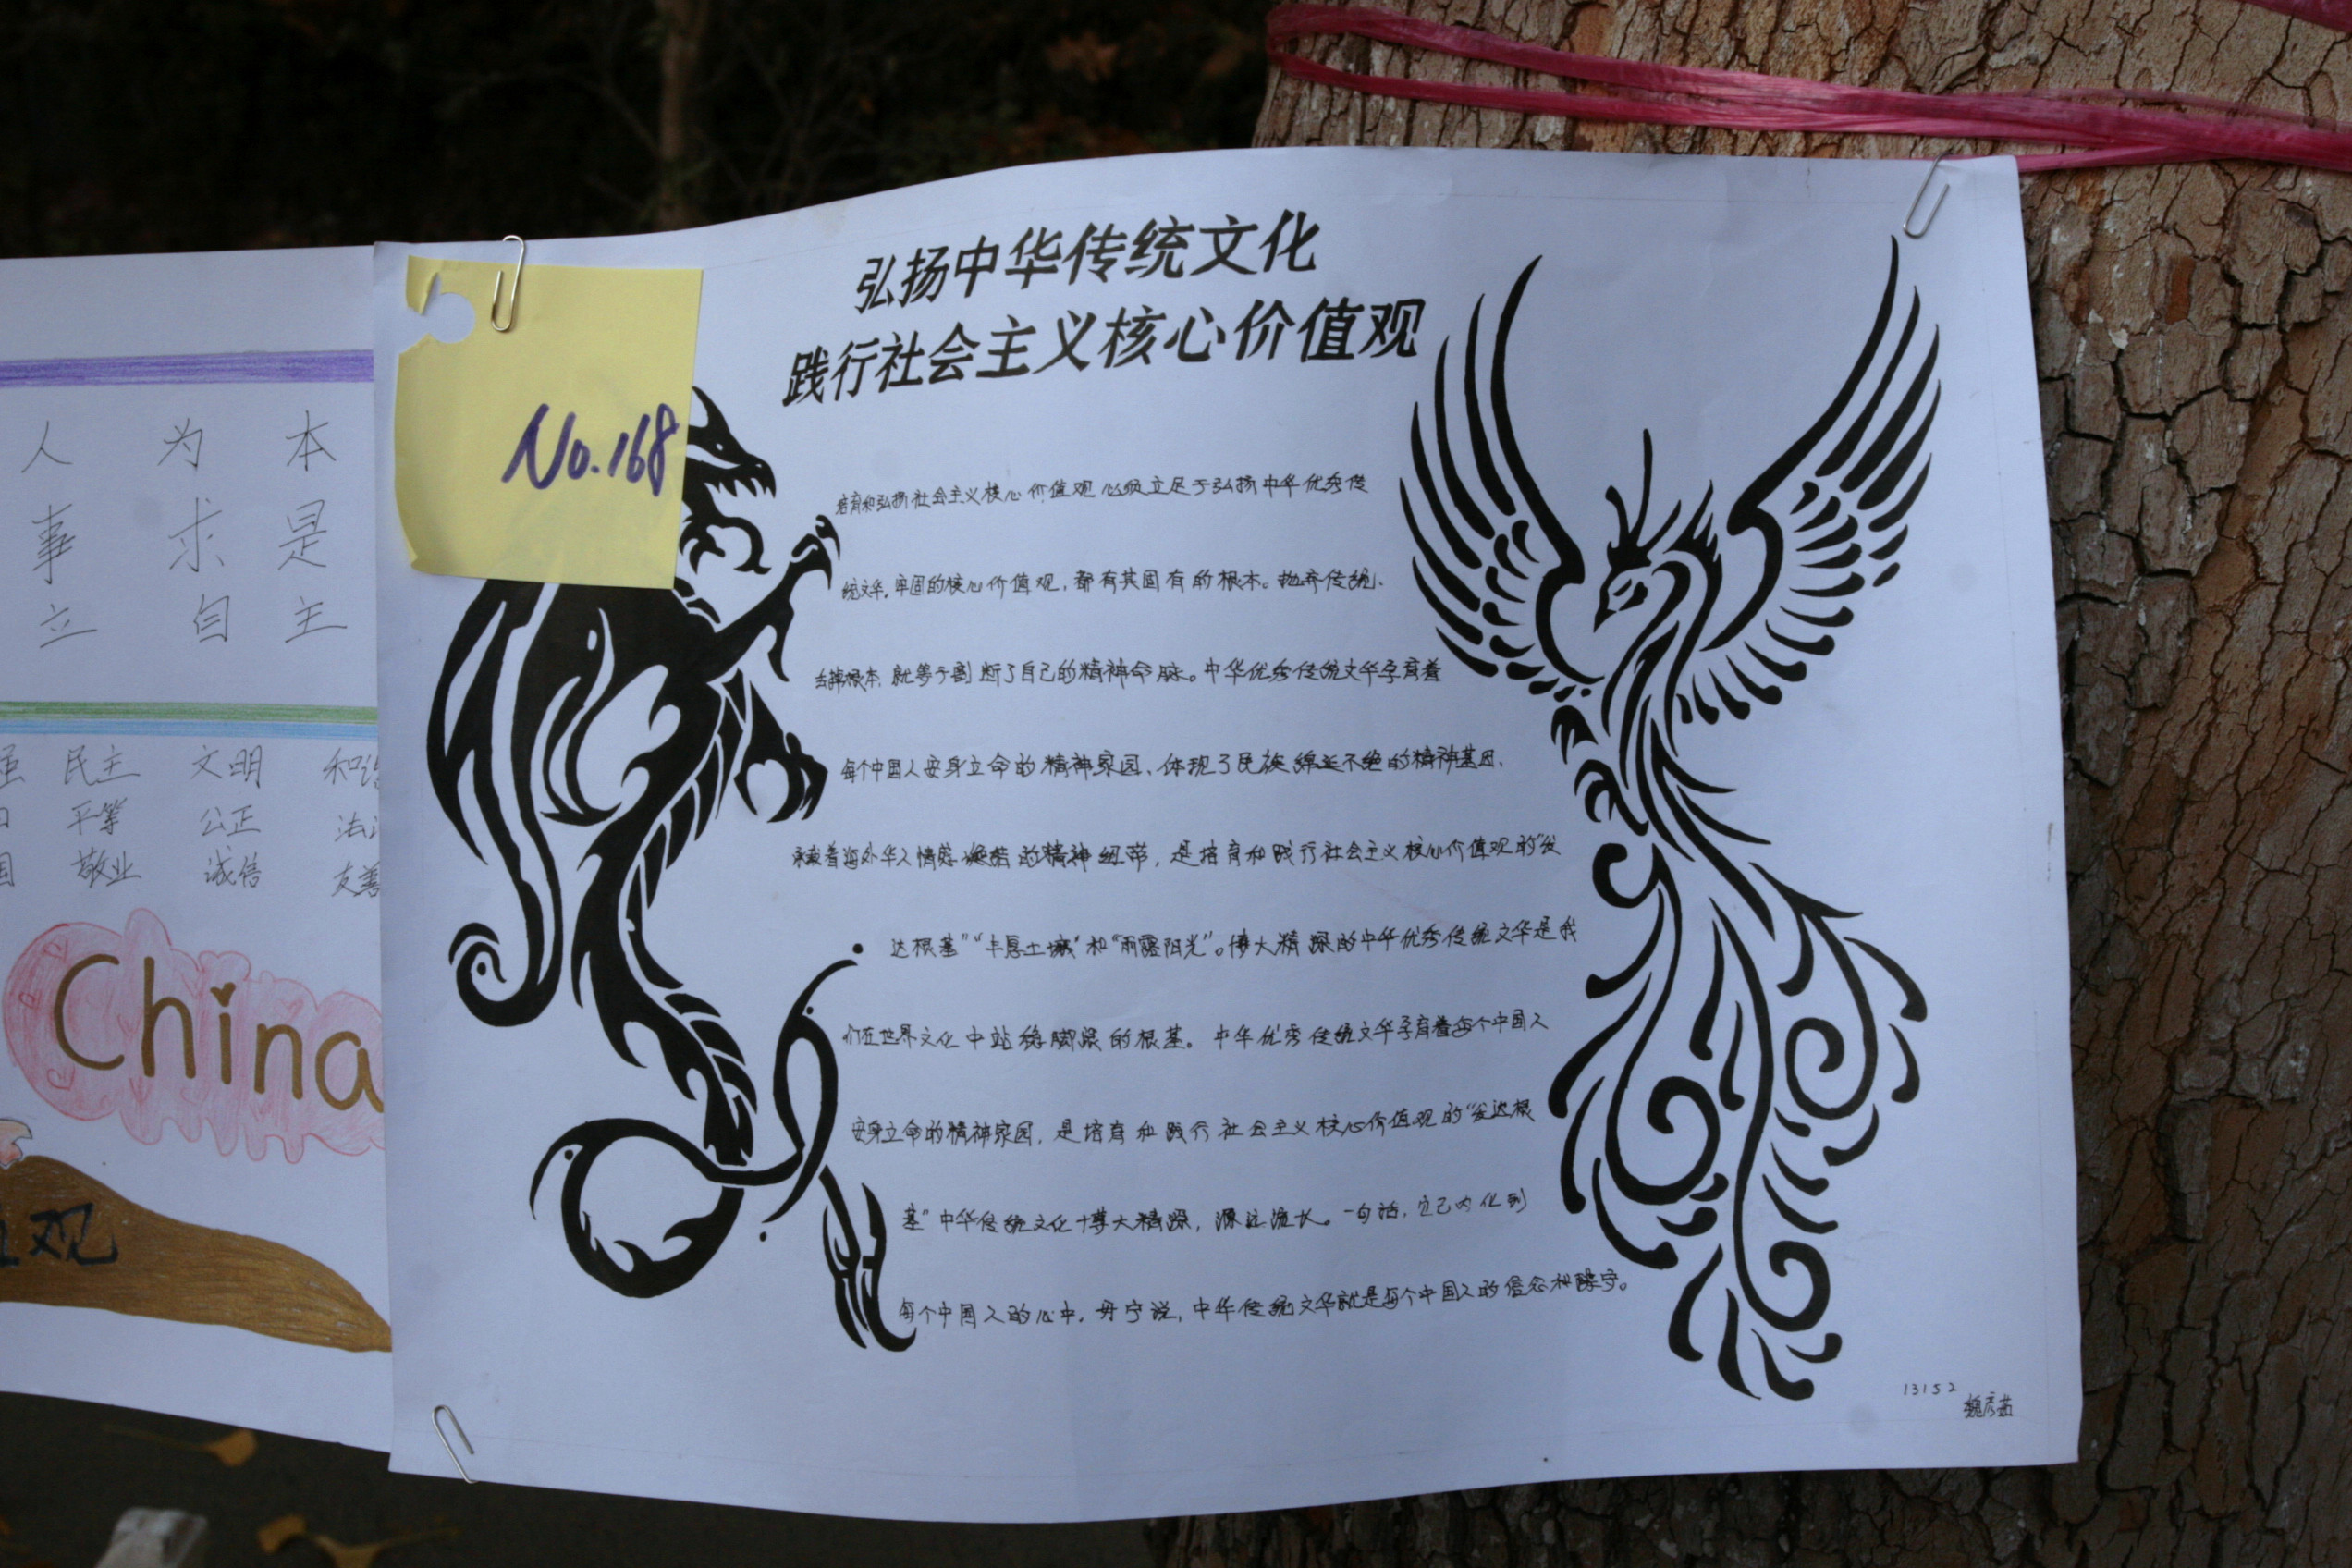 弘扬中华传统文化
践行社会主义核心价值观
No.168
培育和弘扬社会主义核心价值观必须立足于弘扬中华优秀传
统文华。牢固的核心价值观,都有其固有的根本。抛弃传统、
丢掉根本,就等于割断了自己的精神命脉。中华优秀传统文华孕育着
每个中国人安身立命的精神家园、体现了民族绵延不绝的精神基因、
承载着海外华人情感的精神纽带,是培育和践行社会主义核心价值观的"发
达根基""丰厚土壤"和"雨露阳光"。博大精深的中华优秀传统文华是我
们在世界文化中站稳脚跟的根基。中华优秀传统文华孕育着每个中国人
安身立命的精神家园,是培育和践行社会主义核心价值观的"发达根
基"中华传统文化博大精深,源远流长。一句话,它已内化到
每个中国人的心中。毋宁说,中华传统文华就是每个中国人的信念和
13152
人 为 本
事 求 是
立 自 主
强 民主 文明 和谐
平等 公正 法
国 敬业 诚信 友善
China
观